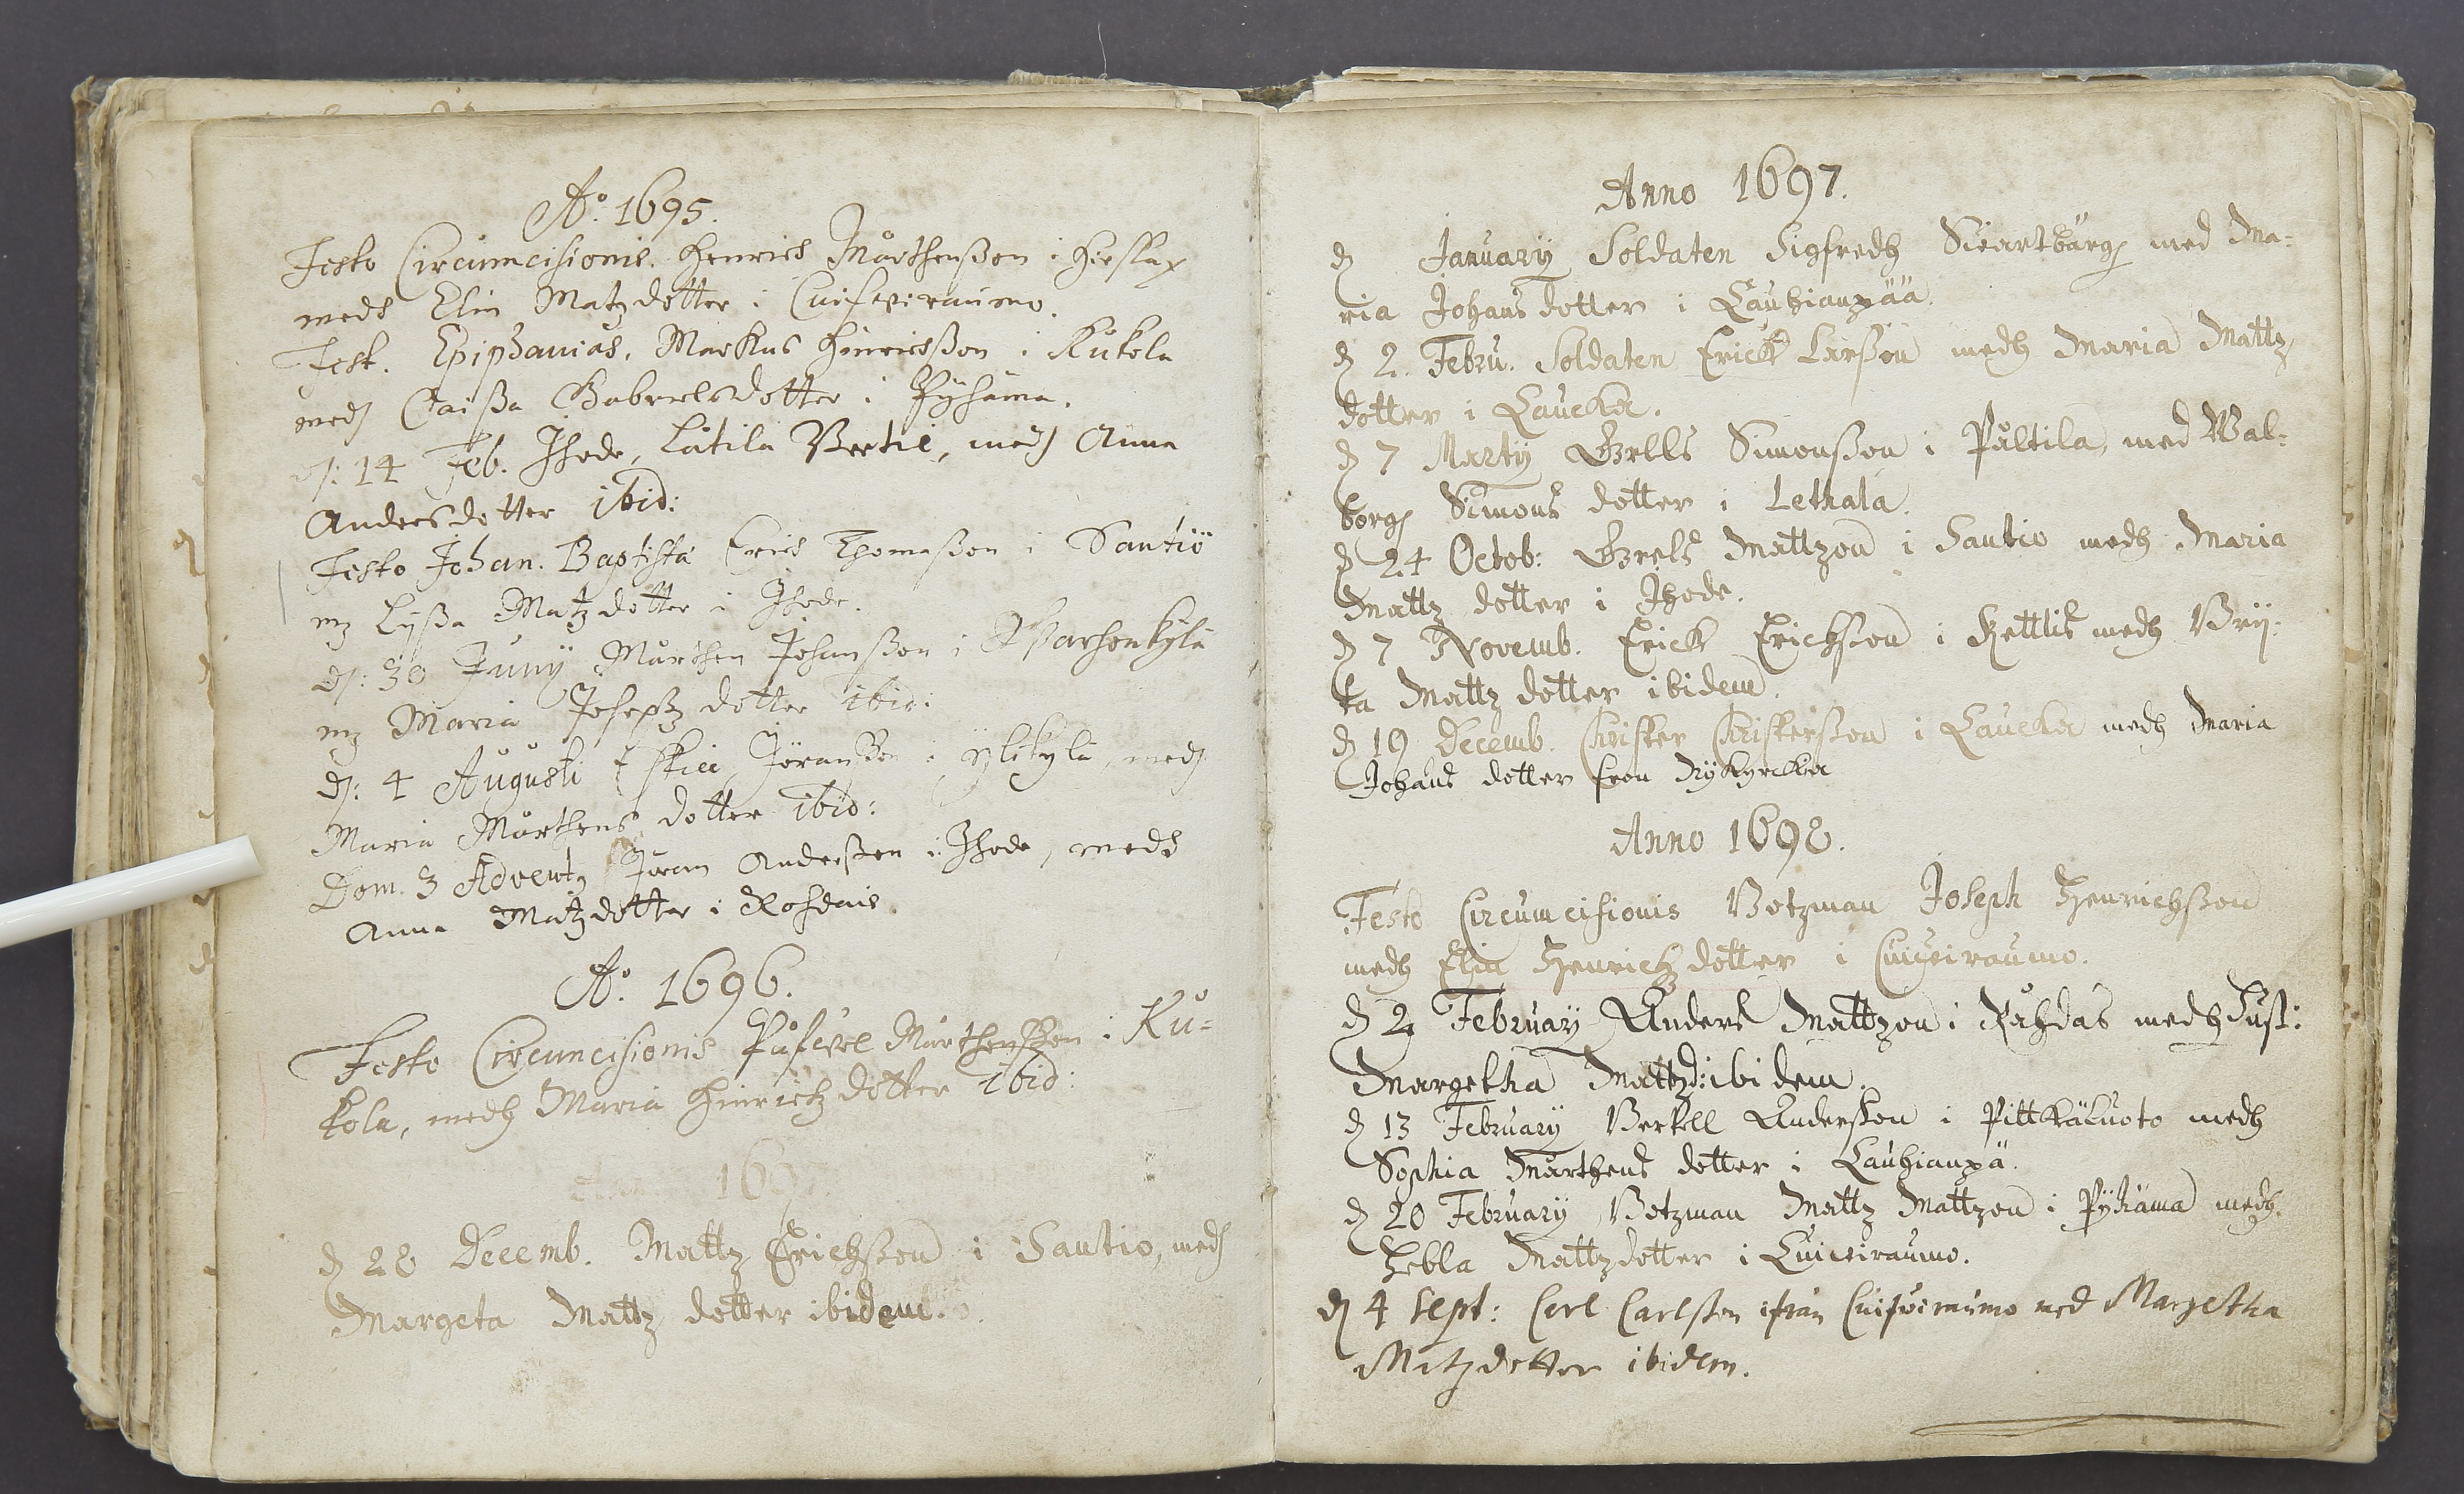 Ao. 1695.
Festo Circumcisionis. Henrich Mårthenßon i
medh Elin Matzdotter i Cuifwiraumo.
Fest. Epiphanias, Markus Hinrichßon i Kukola
medh Caißa Gabrielsdotter i Pyhäma.
d: 14 Feb. Ihode, Låtila Bertil, medh Anna
Andersdotter ibid:
Festo Johan. Baptista Erich Thomaßon i Santiö
mz Lyßa Matzdotter i Ihode.
d: 30 Juny Mårthen Johanßon i Warhenkylä
mz Maria Josephz dotter ibid:
d: 4 Augusti Eskill Jöranßon i Ylikylä, medh
Maria Mårthens dotter ibid:
Dom. 3 Adventz Jöran Anderßon i Ihode, medh
Anna Matzdotter i Rohdais.
Ao. 1696.
Festo Circumcisionis Påfwel Mårthenßon i Ku-
kola, medh Maria Hinrichz dotter ibid:
169
d 28 Decemb. Mattz Erichsson i Santio, medh
Margeta Mattz dotter ibidem.
Anno 1697.
d January Soldaten Sigfredh Swartbärg med Ma-
ria Johans dotter i Lauhianpää.
d 2. Febru. Soldaten Erick Larßon medh Maria Mattz
dotter i Laucka.
d 7 Marty Grells Simonßon i Pältila, med Wal-
borg Simons dotter i Lethala.
d 24 Octob: Grels Mattzon i Santio medh Maria
Mattz dotter i Ihode.
d 7 Novemb. Erick Erichsson i Kettlis medh Bry-
ta Mattz dotter ibidem.
d 19 Decemb. Christer Christerßon i Laucka medh Maria
Johans dotter från Nykyrckia
Anno 1698.
Festo Circumcisionis Botzman Joseph Henrichsson
medh Elin Henrichz dotter i Cuifwiraumo.
d 2 February Anders Mattzon i Råhdas medh hust:
Margetha Mattzd: ibidem.
d 13 February Bertell Anderßon i Pittkäluoto medh
Sophia Mårthens dotter i Lauhianpä.
d 20 February Botzman Mattz Mattzon i Pyhäma medh
Hebla Mattzdotter i Cuiwiraumo.
d 4 Sept: Carl Carlsson ifrån Cuifwiraumo med Margetha
Matzdotter ibidem.